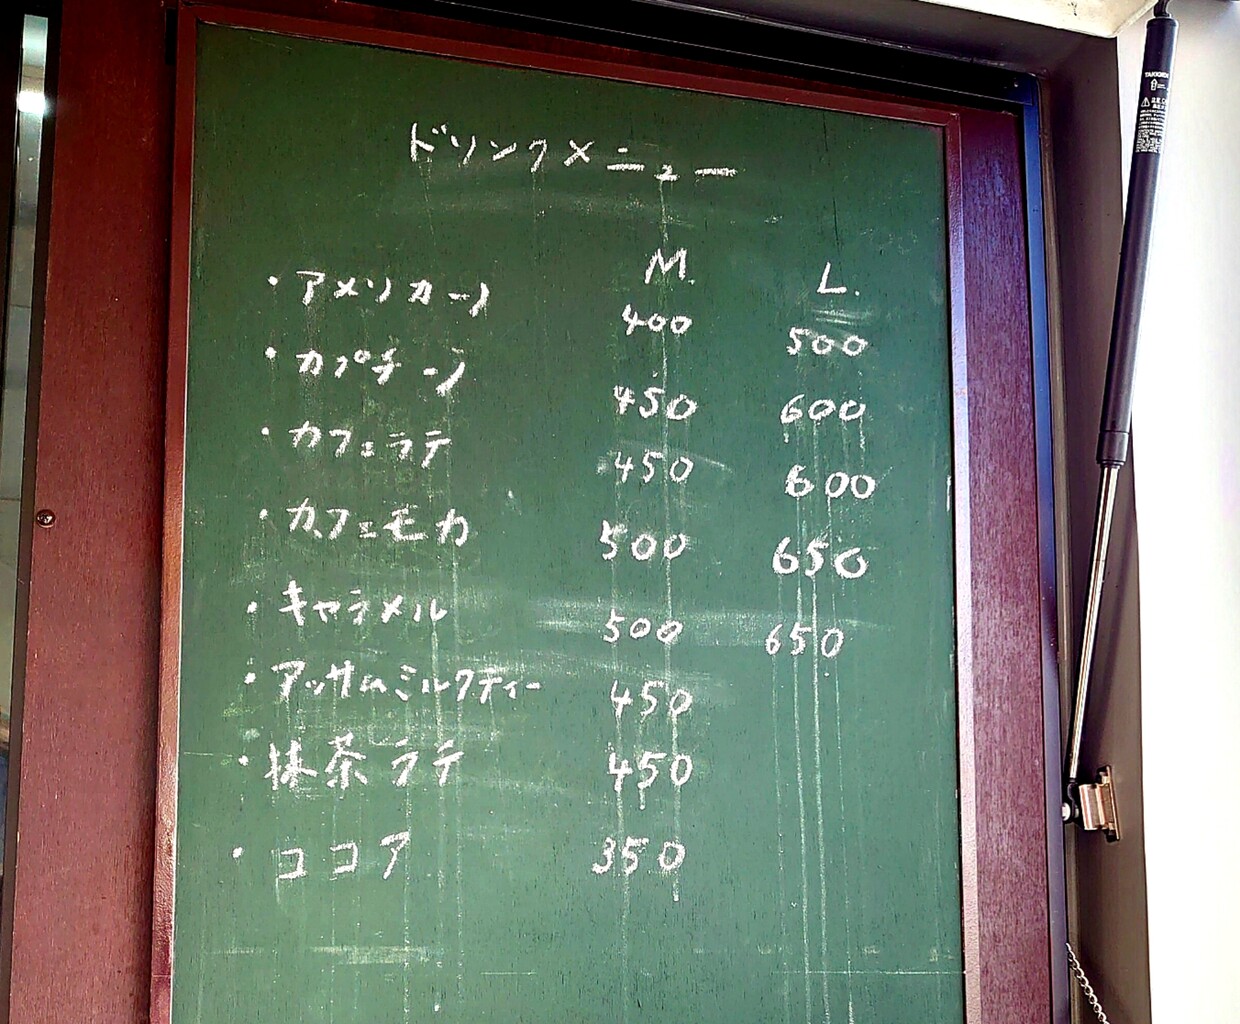 ドリンクメニュー
M. L.
・アメリカーノ 400 500
・カプチーノ 450 600
・カフェラテ 450 600
・カフェモカ 500 650
・キャラメル 500 650
・アッサムミルクティー 450
・抹茶ラテ 450
・ココア 350